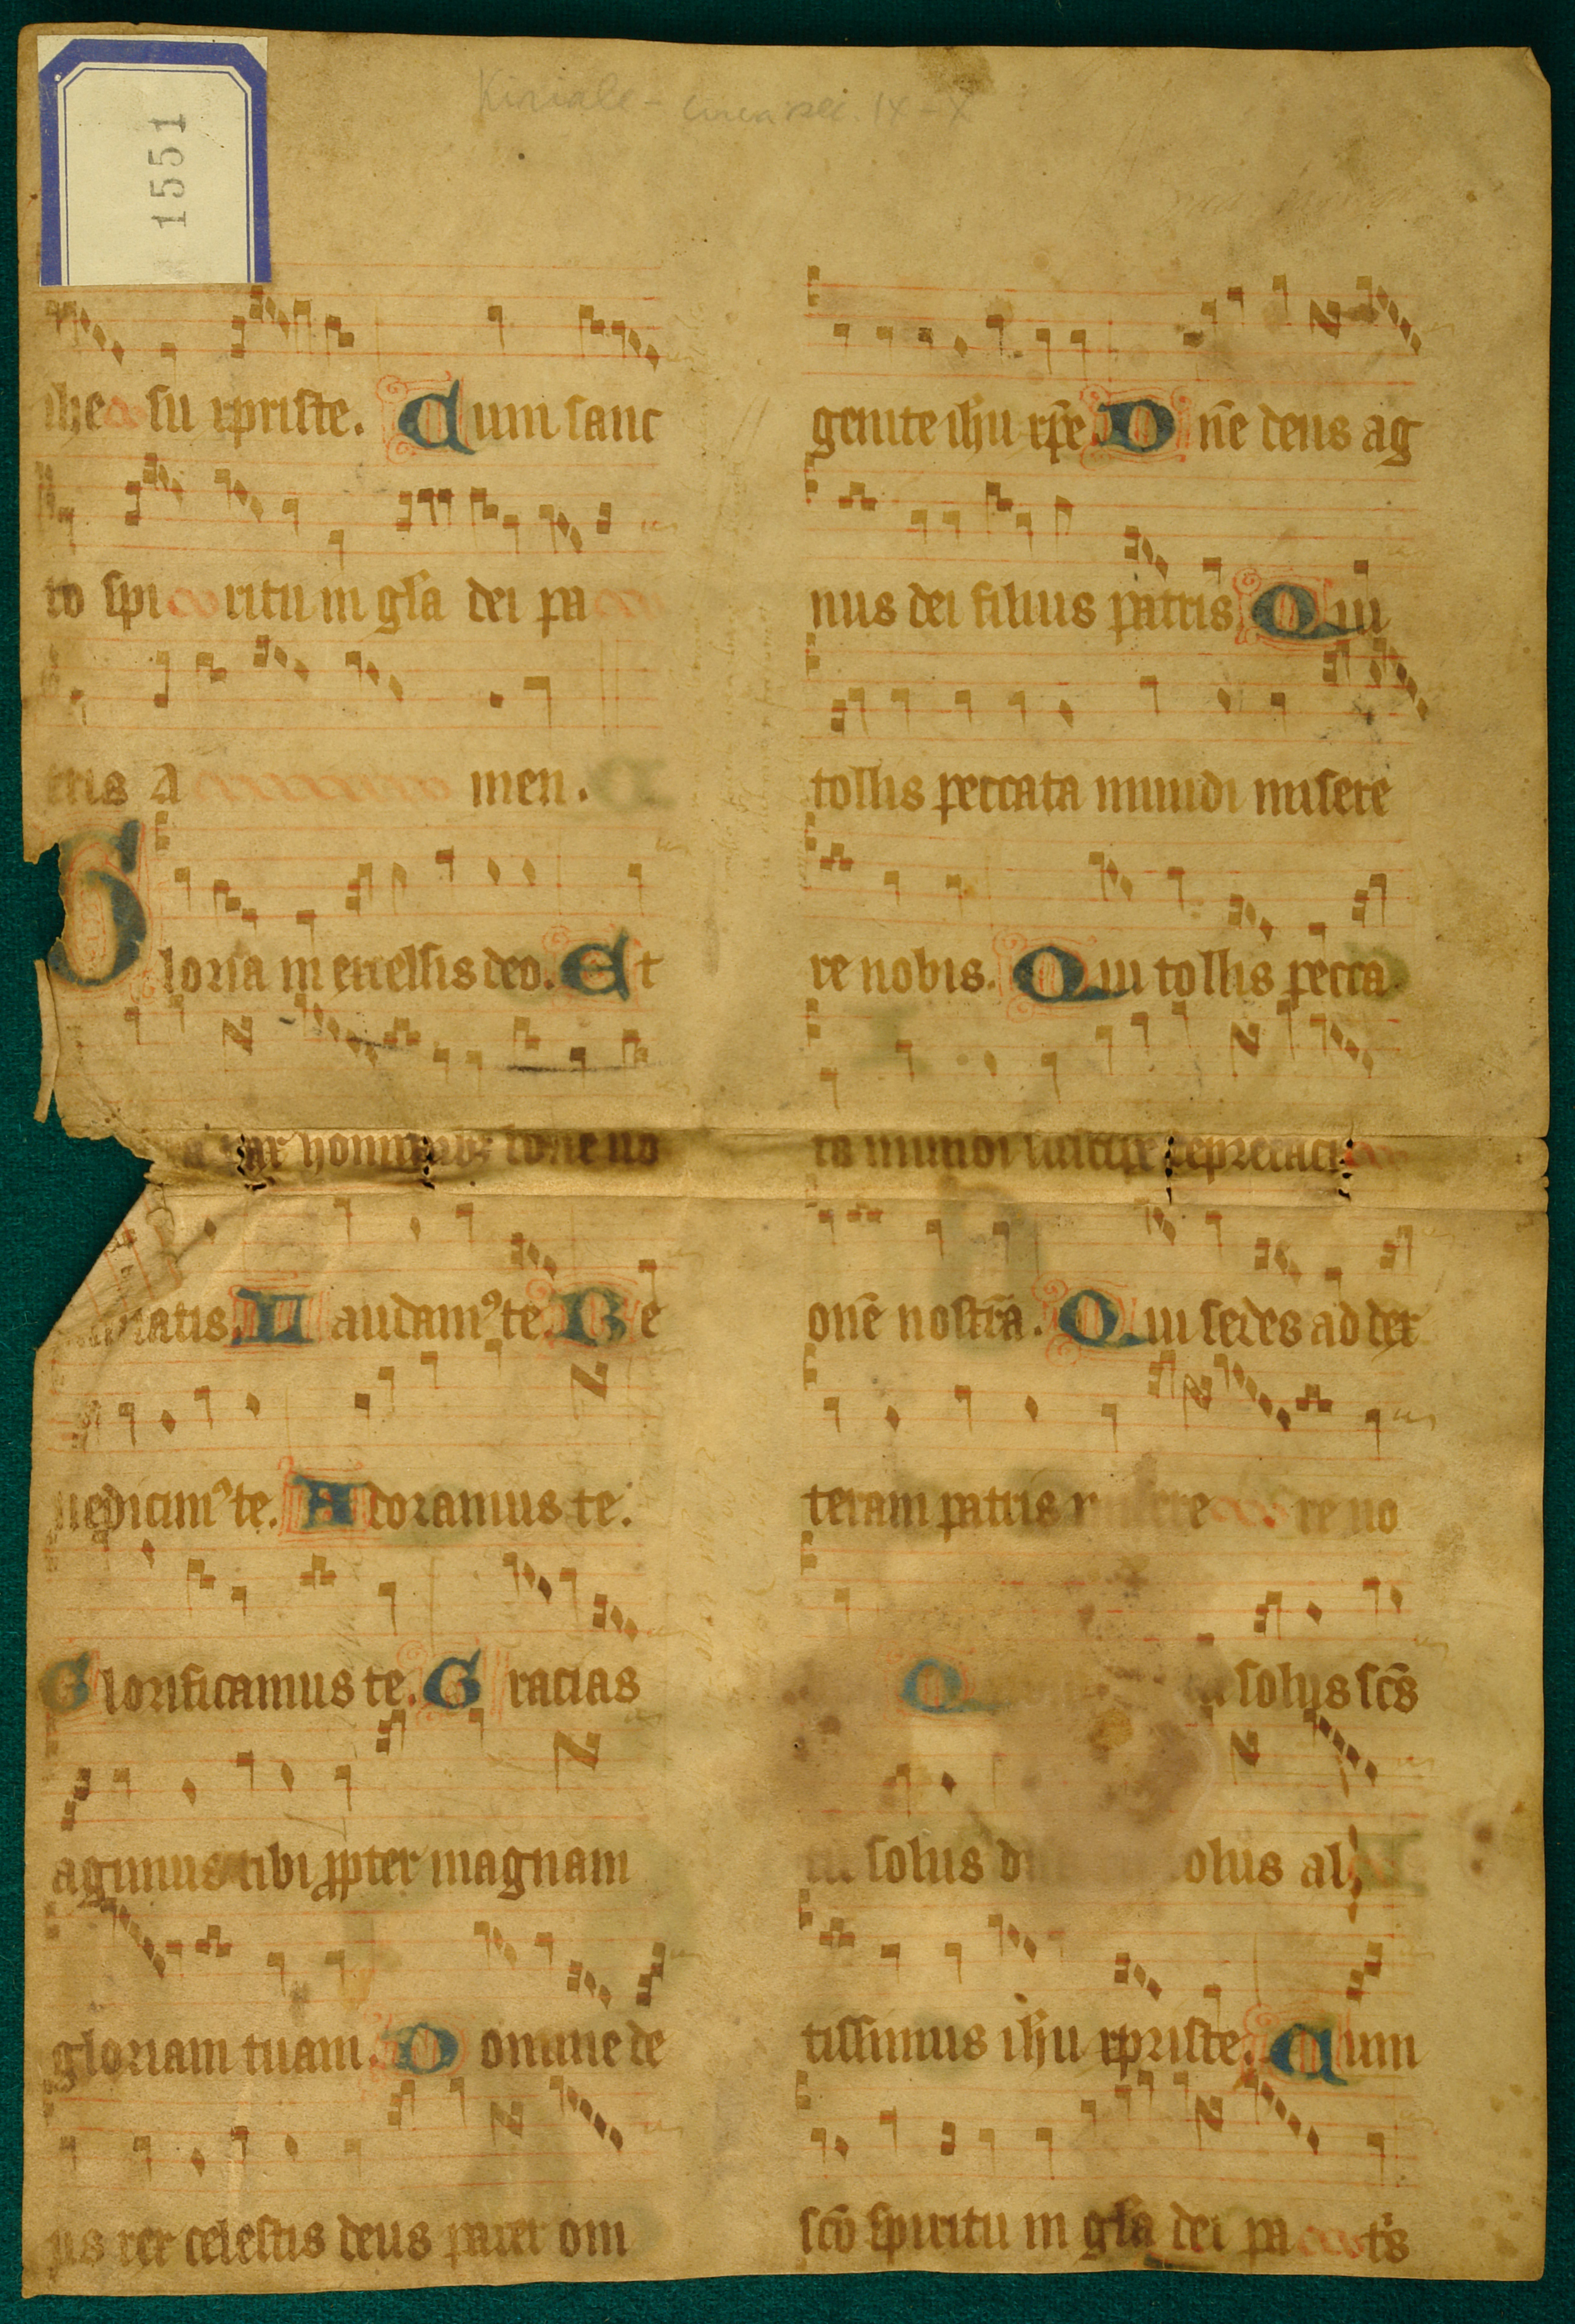 1551
Kiriale - circa sec IX - X
ihe su xpriste. Cum sanc
to spi ritu in gl̃a dei pa
tris A men.
Gloria in excelsis deo. Et
pax hominib; bone uo
natis. Laudamꝰ te. Be
nedicimꝰ te. Adoramus te.
Glorificamus te. Gracias
agimus tibi ꝓpter magnam
gloriam tuam. Domine de
us rex celestis deus pater om
genite ih̃u xp̃e. Dñe deus ag
nus dei filius patris Qui
tollis peccata mundi misere
re nobis. Qui tollis pecca
ta mundi suscipe deprecaci
onẽ nostrã. Qui sedes ad dex
teram patris re re no
Q solus sc̃s
solus olus al
tissimus ih̃u xpriste. Cum
sc̃o spiritu in gl̃a dei pa ts